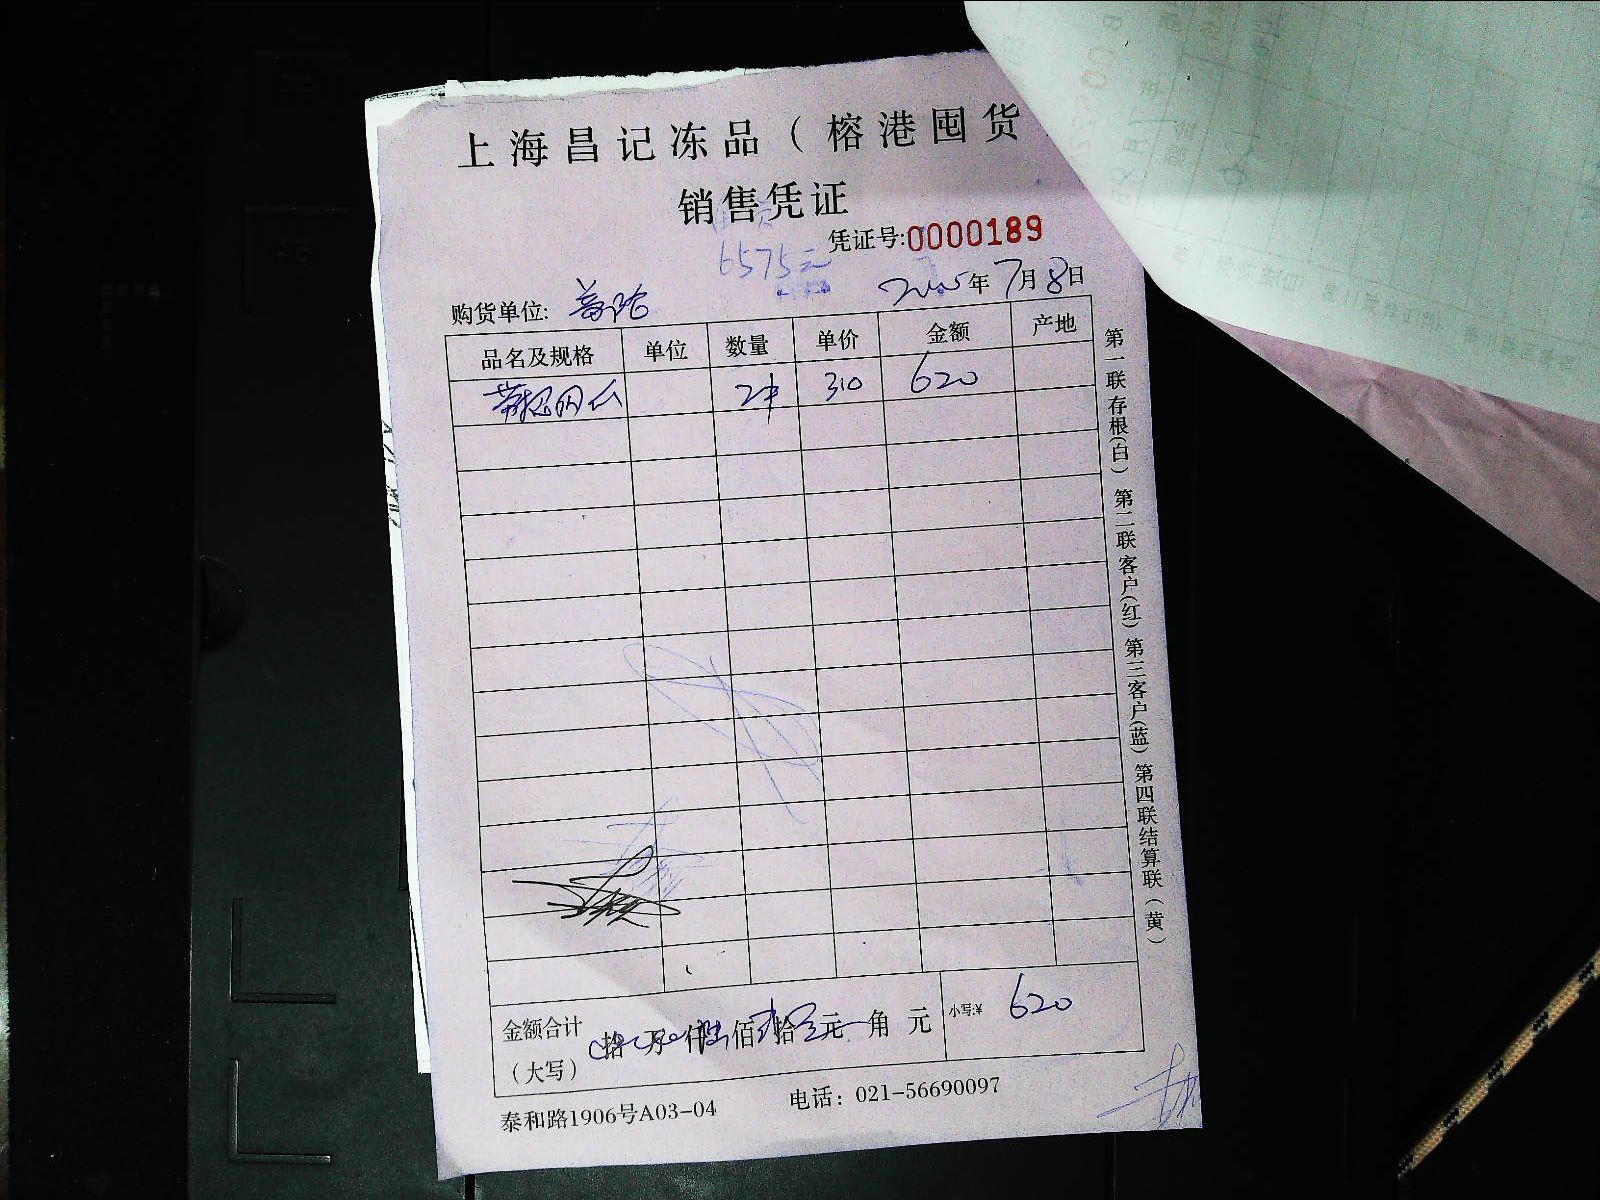 上海昌记冻品（榕港囤货
销售凭证
凭证号:0000189
6575元
购货单位:
年7月8日
品名及规格 单位 数量 单价 金额 产地
2件 310 620
金额合计
（大写）
拾 万 仟陆佰贰拾零元 角 元
小写:¥ 620
泰和路1906号A03-04 电话：021-56690097
第一联存根(白) 第二联客户(红) 第三客户(蓝) 第四联结算联（黄）